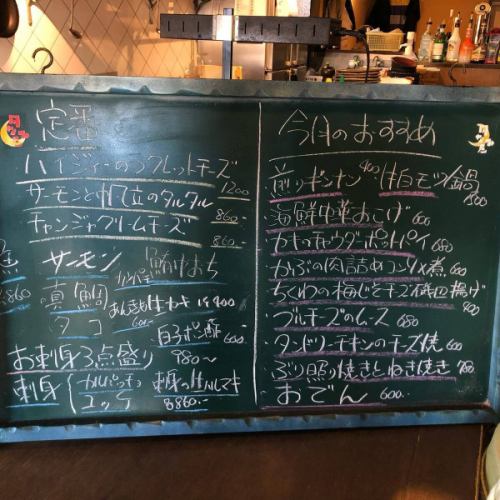 定番
ハイジィーのラクレットチーズ 1200
サーモンと帆立のタルタル 860.-
チャンジャクリームチーズ 860.-
サーモン
真鯛
タコ
860
カルパッチョ
あんきも
600.-
生カキ 1ヶ400
白子ポン酢 600.-
お刺身3点盛り 980〜
刺身
カルパッチョ
ユッケ
860.-
今月のおすすめ
400
白モツ鍋
800
海鮮中華おこげ 600
カキのチャウダーポットパイ 680
かぶの肉詰めコンソメ煮 600
ちくわの梅じそチーズ磯辺揚げ
ブルーチーズのムース 680
タンドリーチキンのチーズ焼 600
ぶり照り焼きとねぎ焼き 780
おでん 600.-